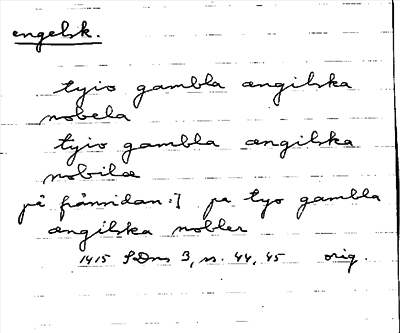 engelsk.
tyio gambla ængilska
nobela
tyio gambla ængilska
nobilæ
på frånsidan:] pa tyo gambla
ængilska nobler
1415 SDns 3, s. 44, 45 orig.